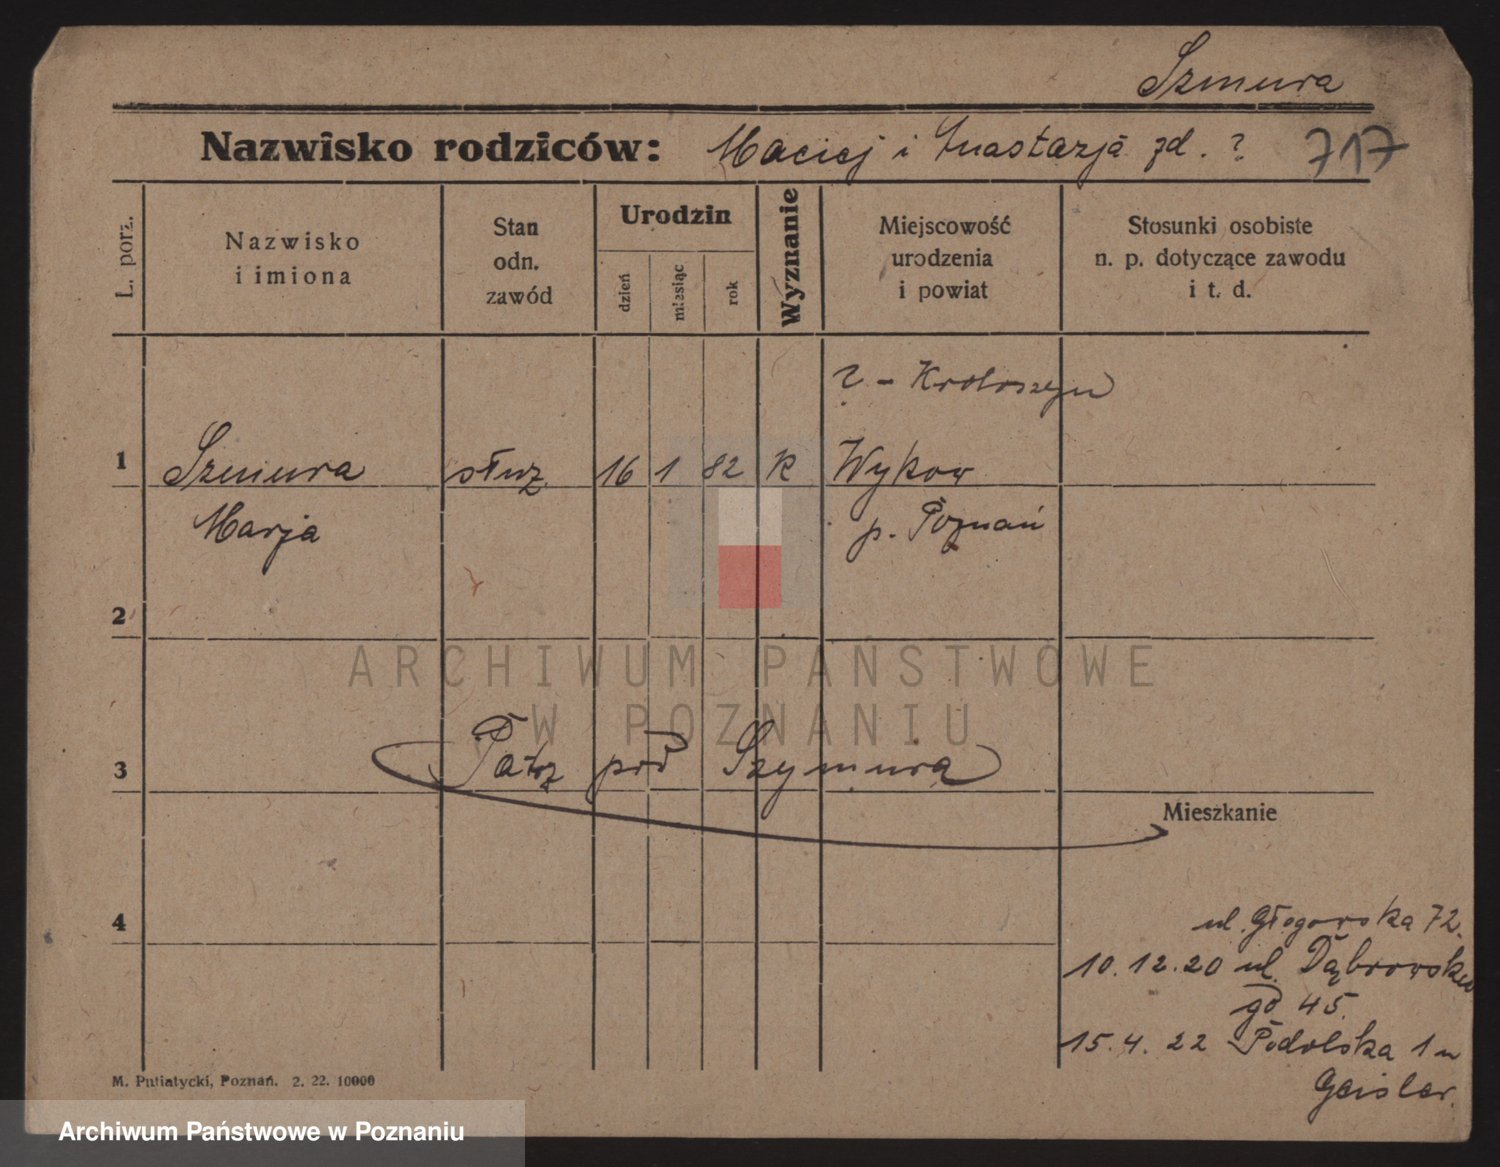 Szmura
Nazwisko rodziców: Maciej i Anastazja zd. ? 717
L. porz.
Nazwisko
i imiona
Stan
odn.
zawód
Urodzin
dzień
miesiąc
rok
Wyznanie
Miejscowość
urodzenia
i powiat
Stosunki osobiste
n. p. dotyczące zawodu
i t. d.
? - Krotoszyn
1 Szmura służ 16 1 82 k Wykow
Marja p. Poznań
2
ARCHIWUM PAŃSTWOWE
W POZNANIU
3 Patrz pod Szymura
Mieszkanie
4
ul. Głogowska 72.
10.12.20 ul. Dąbrowske
go 45.
15.4.22 Podolska 1 u
Geisler.
M. Putiatycki, Poznań. 2. 22. 10000
Archiwum Państwowe w Poznaniu